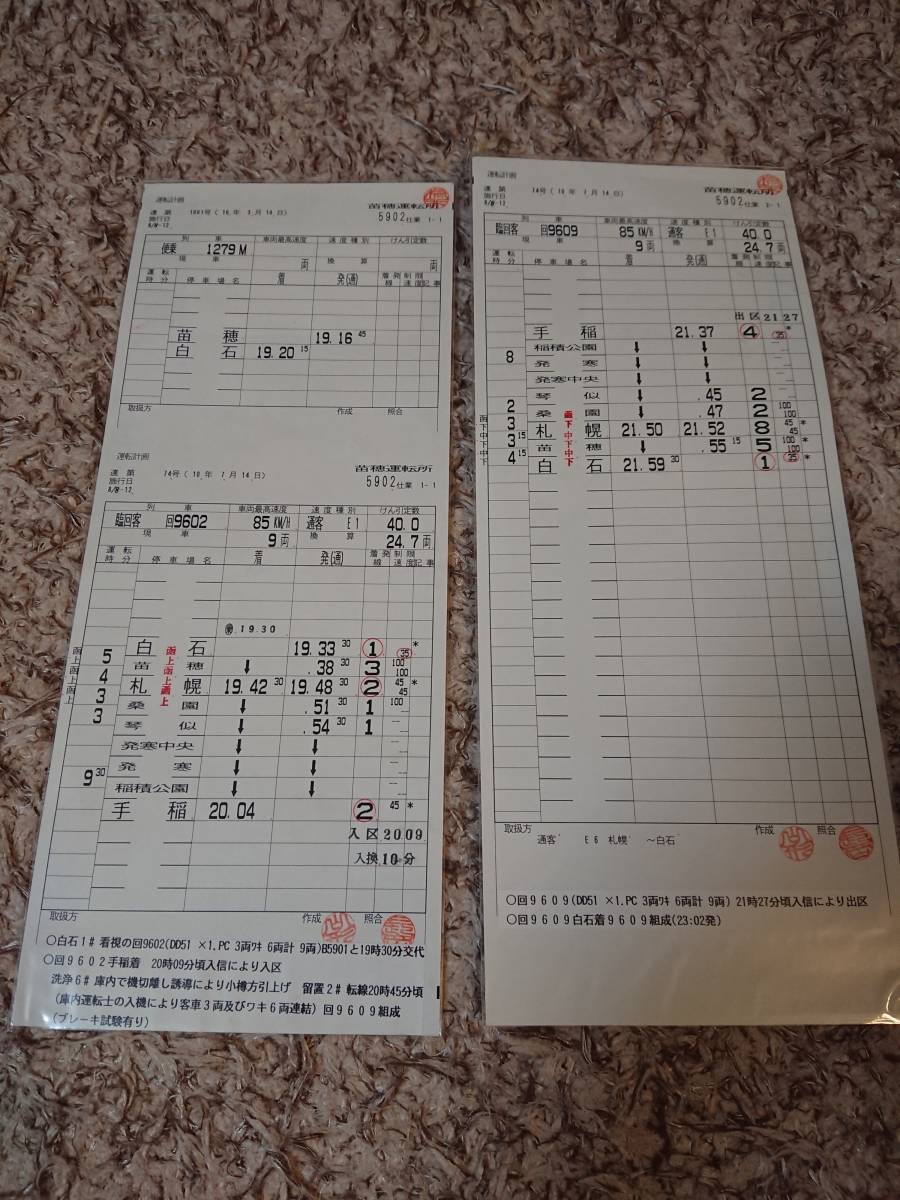 運転計画
達第 1001号(10.年 3月10.日)
施行日
R/W-12
苗穂運転所
5902仕業 1-1
列車 車両最高速度 速度種別 けん引定数
便乗 1279M
現車 両 換算 両
運転時分 停車場名 着 発(通) 着発線 制限速度 記事
苗穂 19.16 45
白石 19.20 15
取扱方 作成 照合
運転計画
達第 74号(10.年 7月14日)
施行日
R/W-12
苗穂運転所
5902仕業 1-1
列車 車両最高速度 速度種別 けん引定数
臨回客 回9602 85KM/H 通客 E1 40.0
現車 9両 換算 24.7両
運転時分 停車場名 着 発(通) 着発線 制限速度 記事
19.30
白石 19.33 30 1 35 *
函上 5 函上
苗穂 ↓ .38 30 3 100
函上 4 函上
札幌 19.42 30 19.48 30 2 45 45 *
函上 3 函上
桑園 ↓ .51 30 1 100
3
琴似 ↓ .54 30 1
発寒中央 ↓ ↓
発寒 ↓ ↓
9 30
稲積公園 ↓ ↓
手稲 20.04 2 45 *
入区20.09
入換10分
取扱方 作成 照合
○白石1#看視の回9602(DD51 ×1.PC 3両ワキ 6両計 9両)B5901と19時30分交代
○回9602手稲着 20時09分頃入信により入区
洗浄6#庫内で機切離し誘導により小樽方引上げ 留置2#転線20時45分頃
(庫内運転士の入機により客車3両及びワキ6両連結)回9609組成
(ブレーキ試験有り)
運転計画
達第 74号(10.年 7月14日)
施行日
R/W-12
苗穂運転所
5902仕業 1-1
列車 車両最高速度 速度種別 けん引定数
臨回客 回9609 85KM/H 通客 E1 40.0
現車 9両 換算 24.7両
運転時分 停車場名 着 発(通) 着発線 制限速度 記事
出区21.27
手稲 21.37 4 35 *
稲積公園 ↓ ↓
8
発寒 ↓ ↓
発寒中央 ↓ ↓
琴似 ↓ .45 2
2
桑園 ↓ .47 2 100 100
函下 3 函下
札幌 21.50 21.52 8 45 45 *
中下 3 15 中下
苗穂 ↓ .55 15 5 100 100 *
中下 4 15 中下
白石 21.59 30 1 35 *
取扱方 作成 照合
通客 E6 札幌 ～白石
○回9609(DD51 ×1.PC 3両ワキ 6両計 9両) 21時27分頃入信により出区
○回9609白石着9609組成(23:02発)